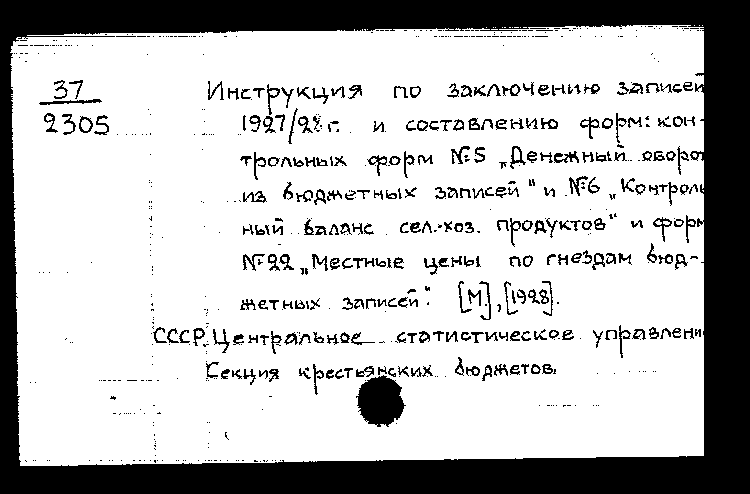 37
2305
Инструкция по заключению записей
1927/28 г. и составлению форм: кон-
трольных форм №5 „Денежный оборот
из бюджетных записей" и №6 „Контроль
ный баланс сел.-хоз. продуктов" и форм
№22 „Местные цены по гнездам бюд-
жетных записей". [М], [1928].
СССР. Центральное статистическое управлени
Секция крестьянских бюджетов.